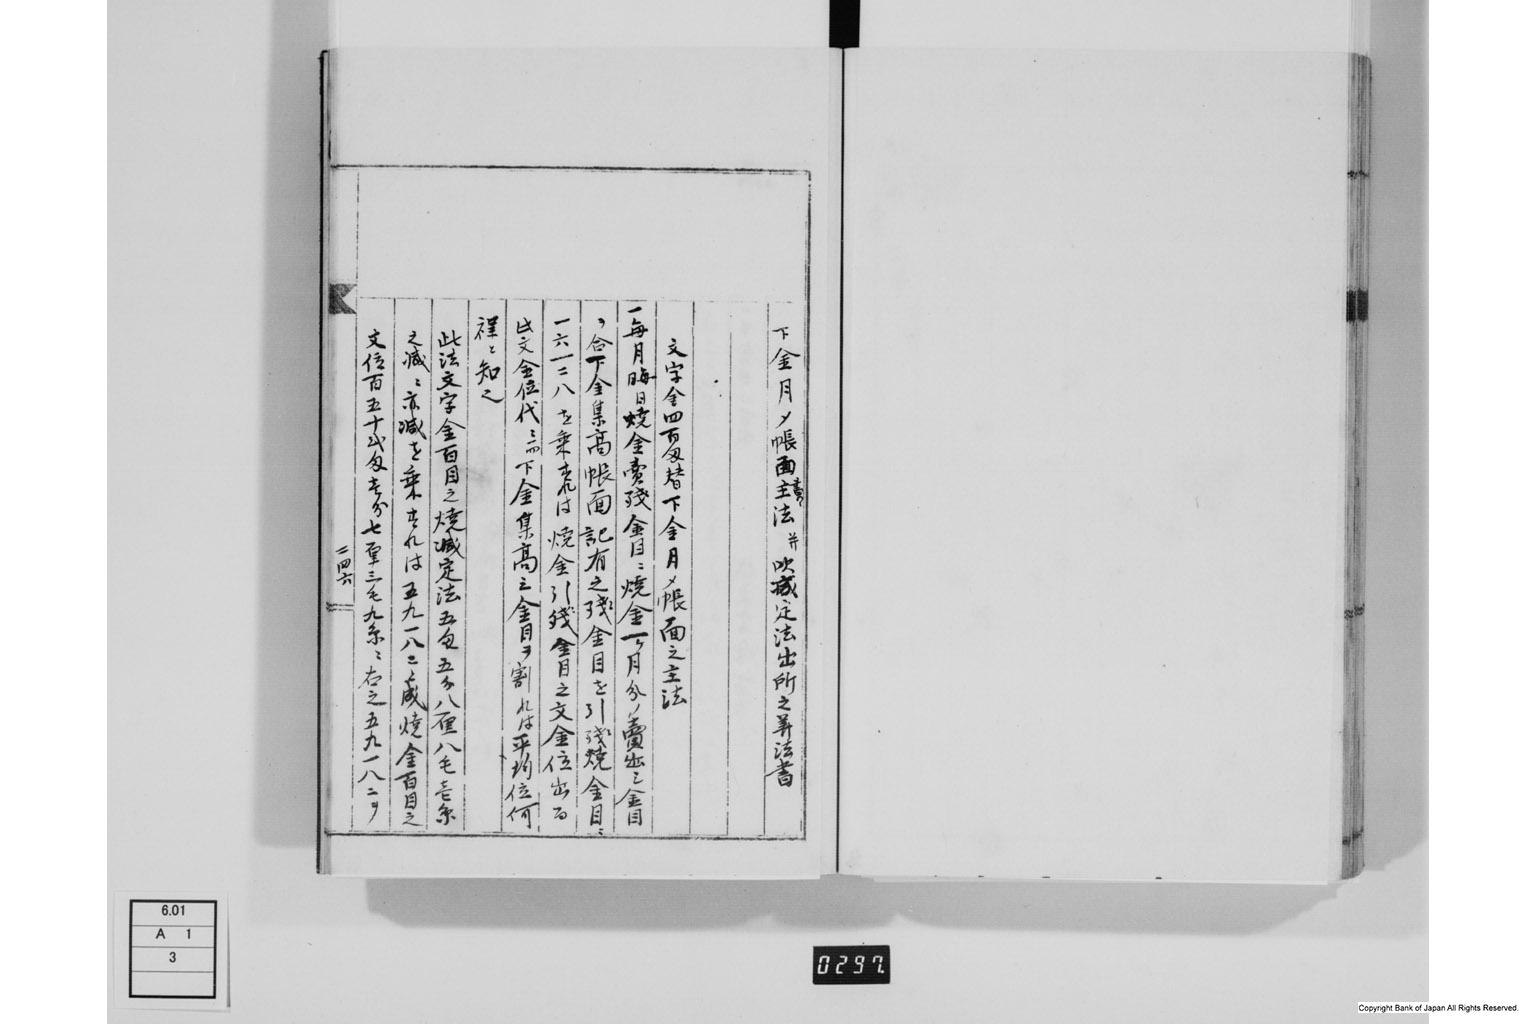 下金月〆帳面主法并吹減定法出所之算法書
文字金四百匁替下金月〆帳面之主法
一毎月晦日焼金賣残金目ニ焼金一ヶ月分ノ賣出シ金目
ヲ合下金集高帳面記有之残金目を引残焼金目ニ
一六一二八を乗すれは焼金引残金目之文金位出る
此文金位代ニ而下金集高之金目ヲ割れは平均位何
程と知之
此法文字金百目之焼減定法五匁五分八厘八毛壱糸
之減ニ亦減を乗すれは五九一八二ト成焼金百目之
文位百五十弐匁壱分七厘三毛九糸ニ右之五九一八二ヲ
二四六
6.01
A 1
3
0297
Copyright Bank of Japan All Rights Reserved.